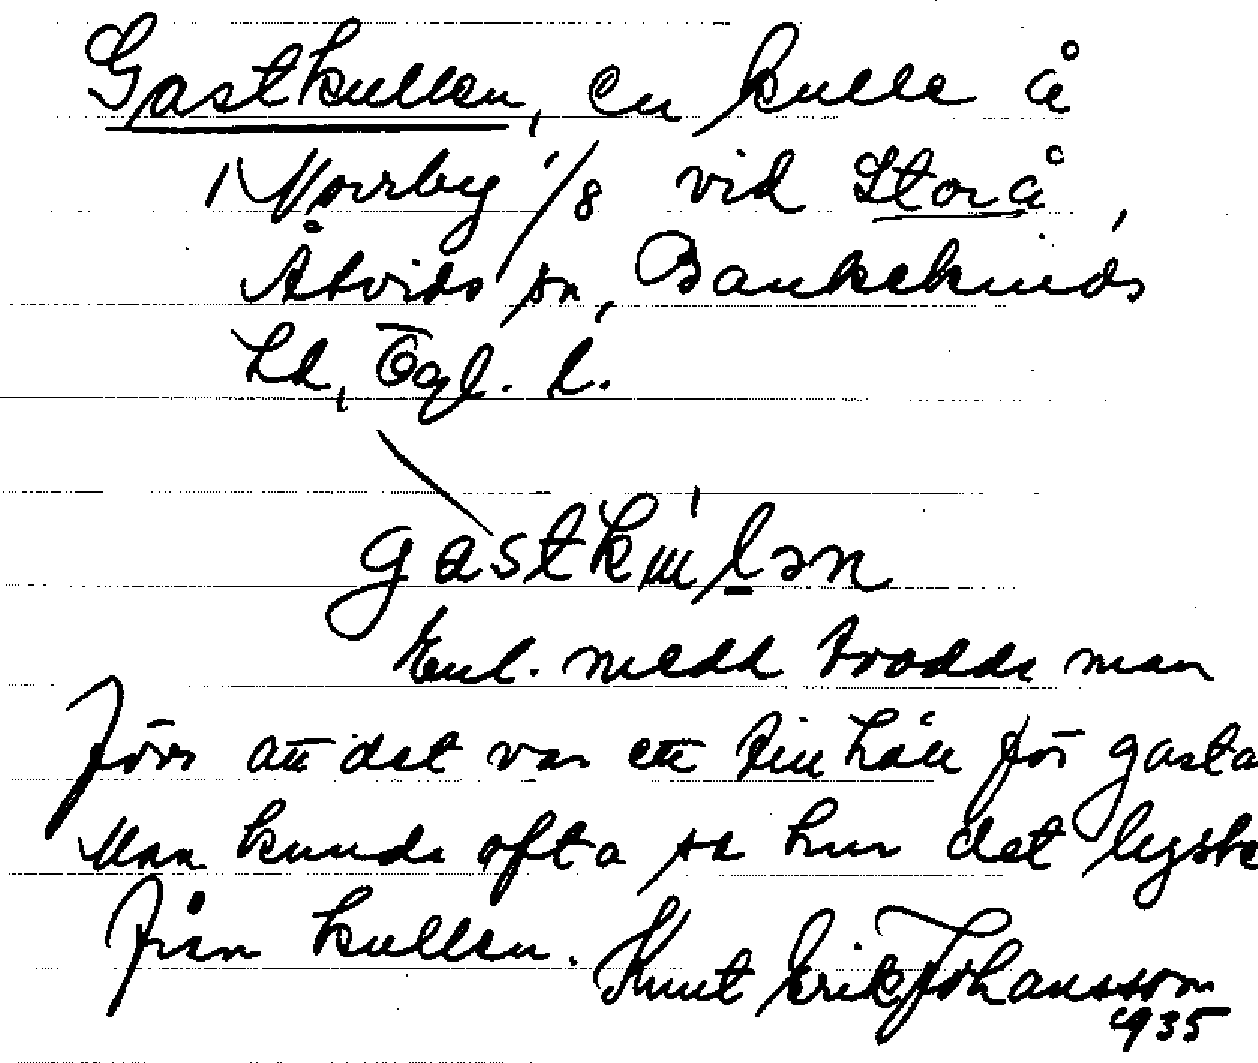 Gastkullen, en kulle å
Norrby 1/8 vid Storå,
Åtvids sn, Bankekinds
hd, Ögl. l.
gastkɯ́lən
Enl. medd trodde man
förr att det var ett tillhåll för gasta
Man kunde ofta se hur det lyste
från kullen. Knut Erik Johansson
1935